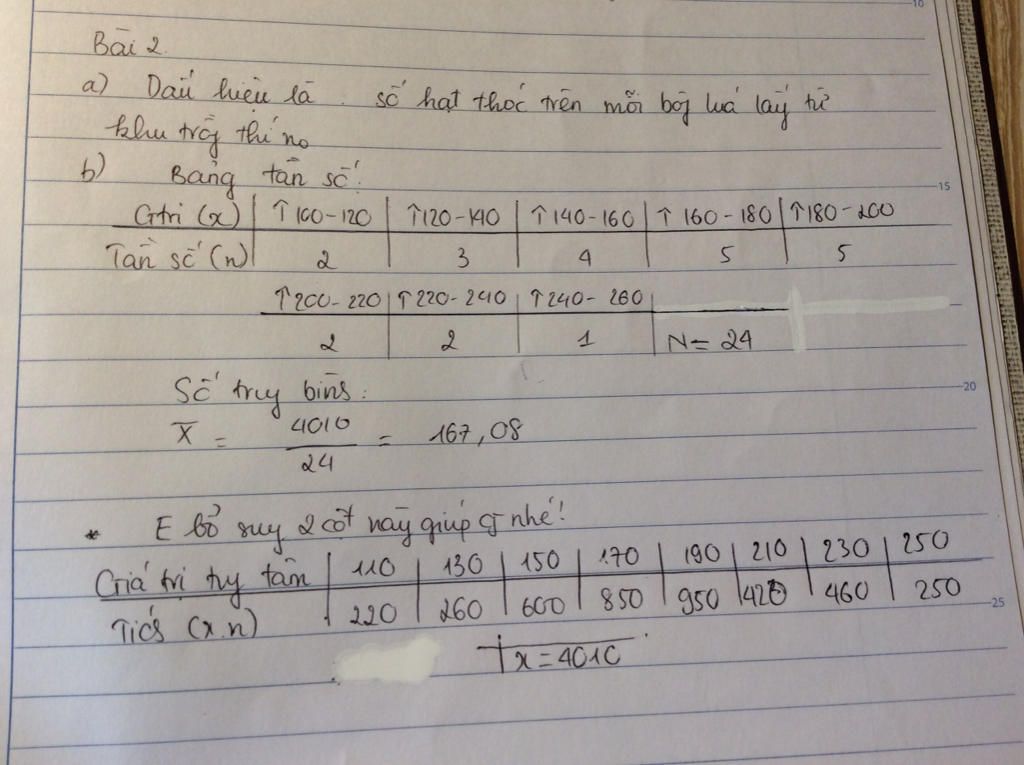 10
Bài 2.
a) Dấu hiệu là : số hạt thóc trên mỗi bôg luá lấy từ
khu trôg thí no
15
b) Bảng tần số:
Gtrị (x) | ↑100-120 | ↑120-140 | ↑140-160 | ↑160-180 | ↑180-200
Tần số (n) | 2 | 3 | 4 | 5 | 5
↑200-220 | ↑220-240 | ↑240-260
2 | 2 | 1 | N= 24
20
Số truy bìng:
X̅ = 4010/24 = 167,08
* E bổ suy 2 cột này giúp cj nhé!
Giá trị tuy tâm | 110 | 130 | 150 | 170 | 190 | 210 | 230 | 250
25
Tícs (x.n) | 220 | 260 | 600 | 850 | 950 | 420 | 460 | 250
Tx=4010